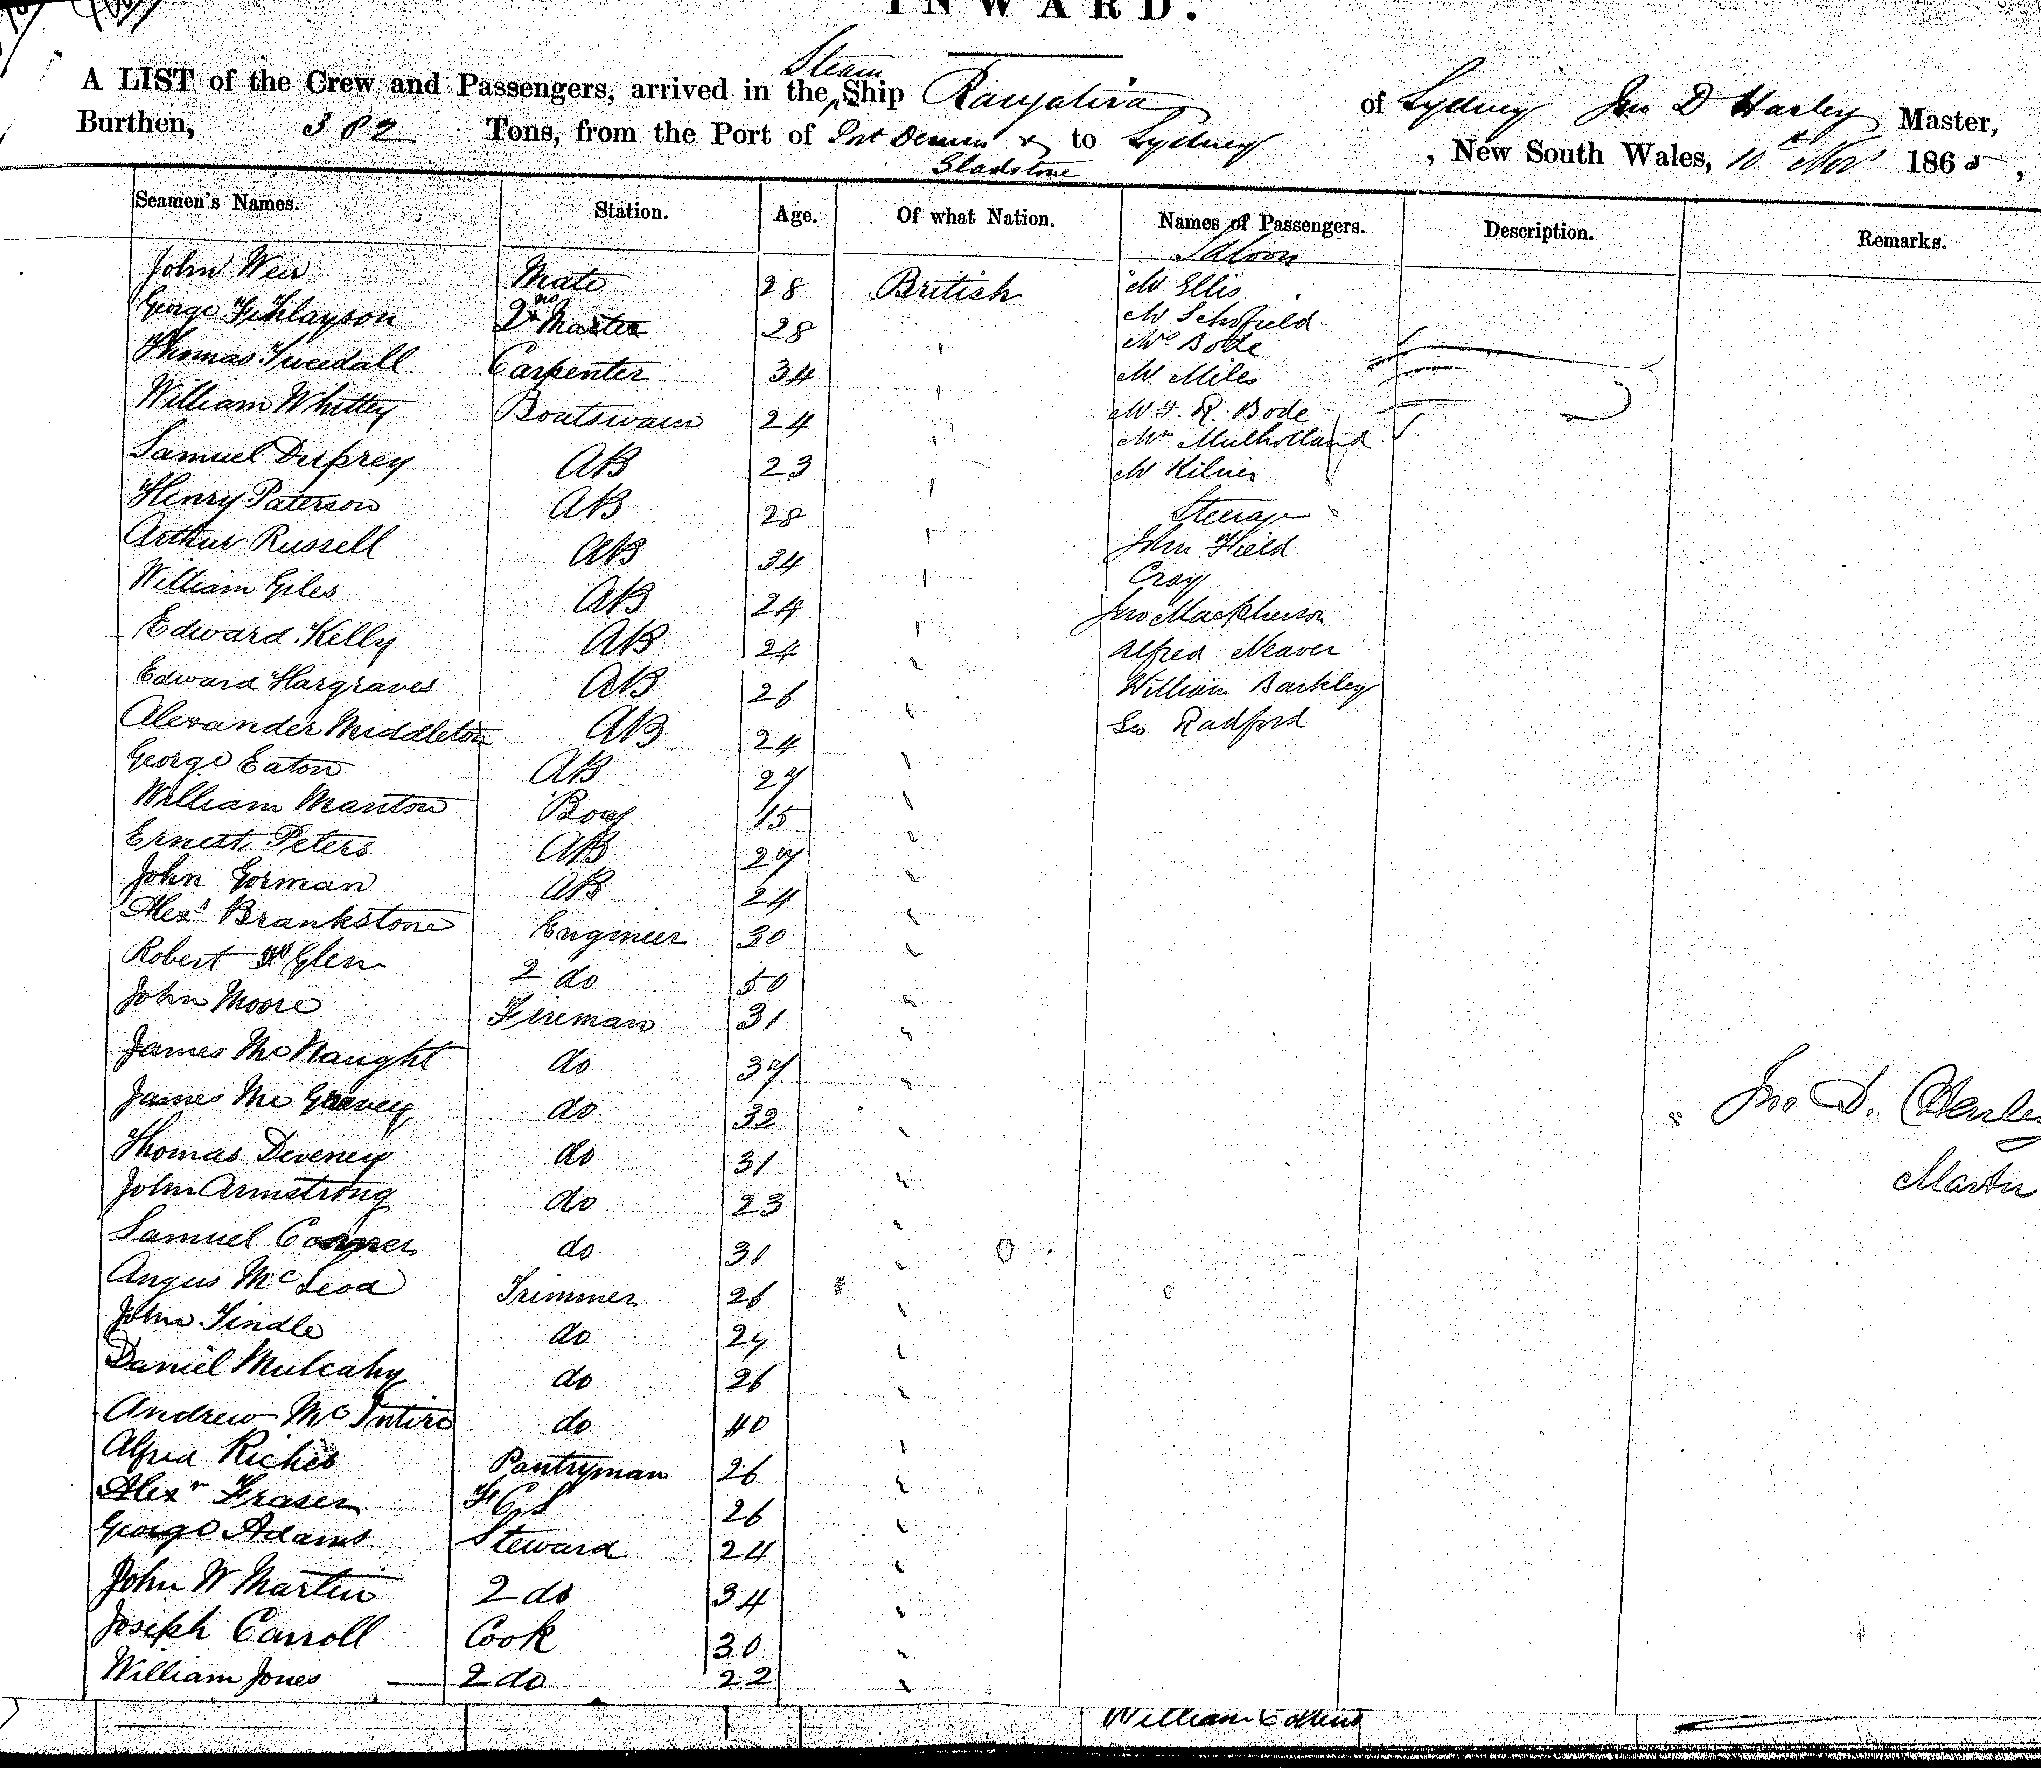 INWARD.
A LIST of the Crew and Passengers, arrived in the Steam Ship Rangatira of Sydney Jno D Harley Master,
Burthen, 382 Tons, from the Port of Port Denison & Gladstone to Sydney, New South Wales, 10th Novr 1865,
Seamen's Names. Station. Age. Of what Nation. Names of Passengers. Description. Remarks.
Saloon
John Weir Mate 28 British Mr Ellis
George Finlayson 2nd Master 28 " Mr Schofield
Mr Bode
Thomas Tweedall Carpenter 34 " Mr Miles
William Whittey Boatswain 24 " Mr F. R. Bode
Mrs Mulholland
Samuel Duprey AB 23 " Mr Kilner
Henry Paterson AB 28 " Steerage
Arthur Russell AB 34 " John Field
William Giles AB 24 " Cray
Jno Mackpherson
Edward Kelly AB 24 " Alfred Neaver
Edward Hargraves AB 26 " William Barkley
Alexander Middleton AB 24 " Geo Radford
George Eaton AB 27 "
William Manton Boy 15 "
Ernest Peters AB 27 "
John Gorman AB 24 "
Alexr Brankstone Engineer 30 "
Robert Glen 2 do 50 "
John Moore Fireman 31 "
James McNaught do 37 "
James Mc do 32 "
Thomas Deveney do 31 "
John Armstrong do 23 "
Samuel do 31 "
Angus McLeod Trimmer 26 "
John Tindle do 27 "
Daniel Mulcahy do 26 "
Andrew McIntire do 40 "
Alfred Riches Pantryman 26 "
Alexr Fraser F C S 26 "
George Adams Steward 24 "
John W Martin 2 do 34 "
Joseph Carroll Cook 30 "
William Jones 2 do 22 "
Jno D. Harley
Master
William Collins